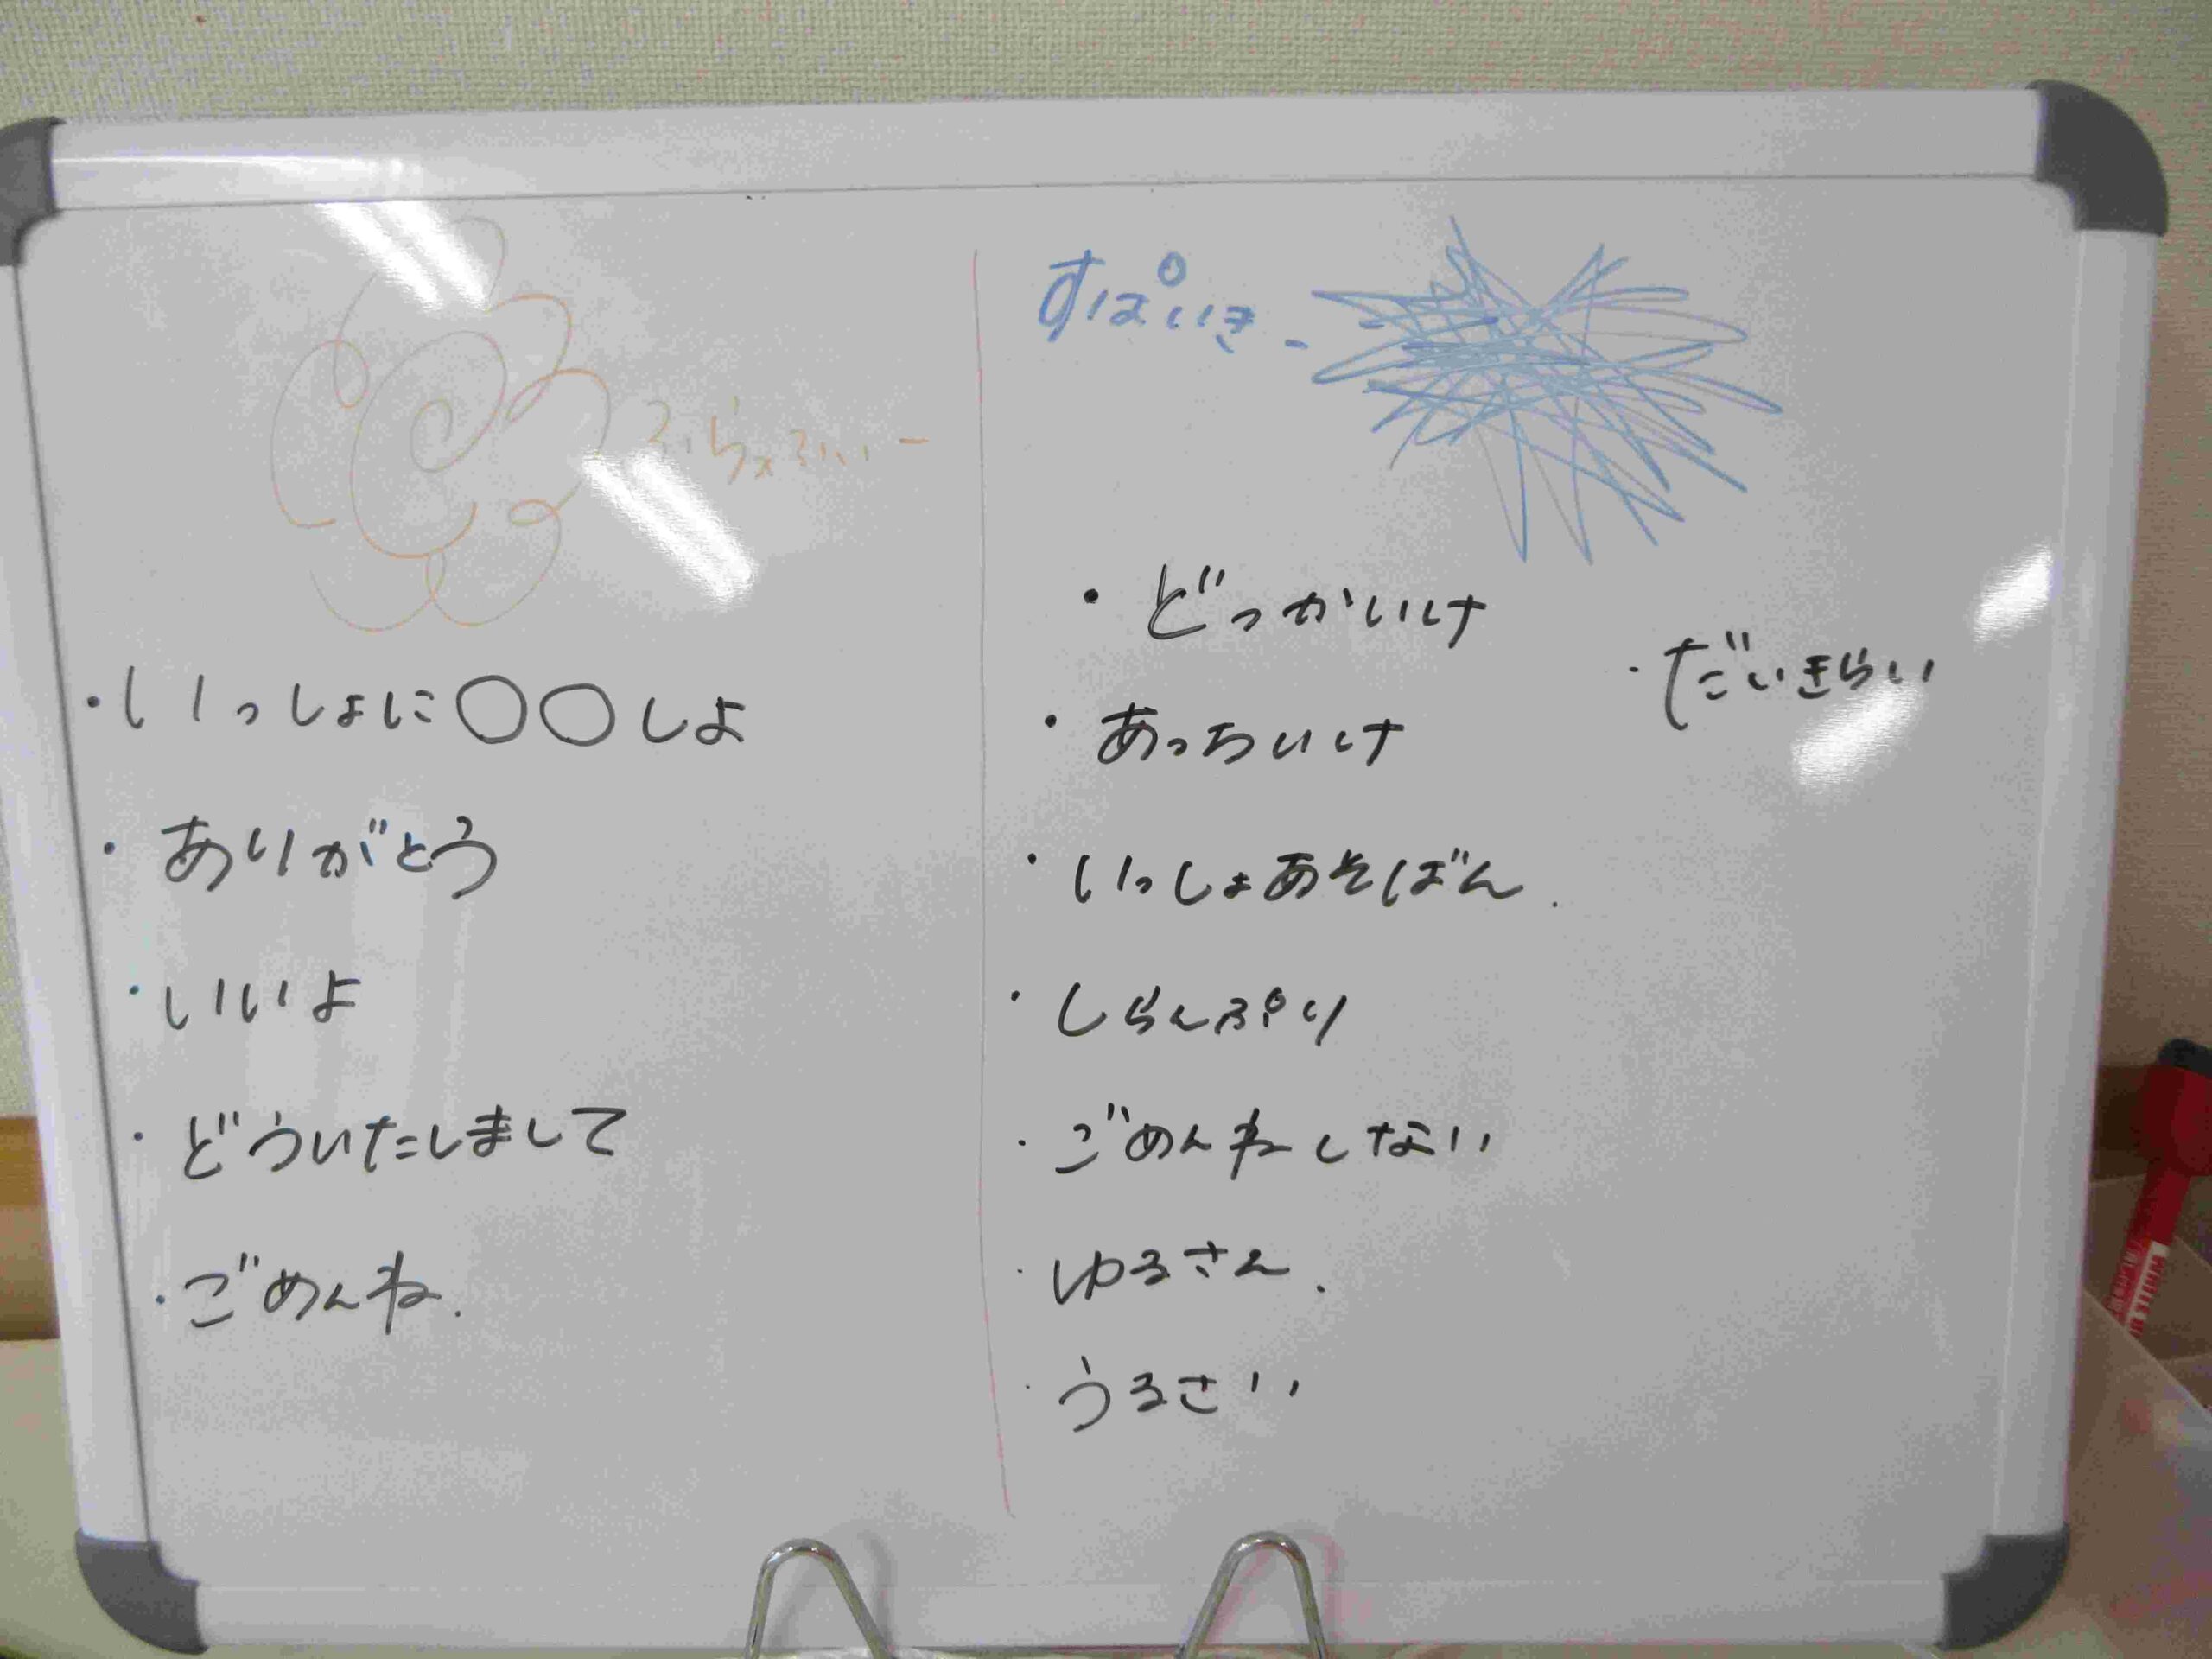 ふらっふぃー
・いっしょに〇〇しよ
・ありがとう
・いいよ
・どういたしまして
・ごめんね.
すぱいきー
・どっかいけ
・だいきらい
・あっちいけ
・いっしょあそばん.
・しらんぷり
・ごめんねしない
・ゆるさん.
・うるさい